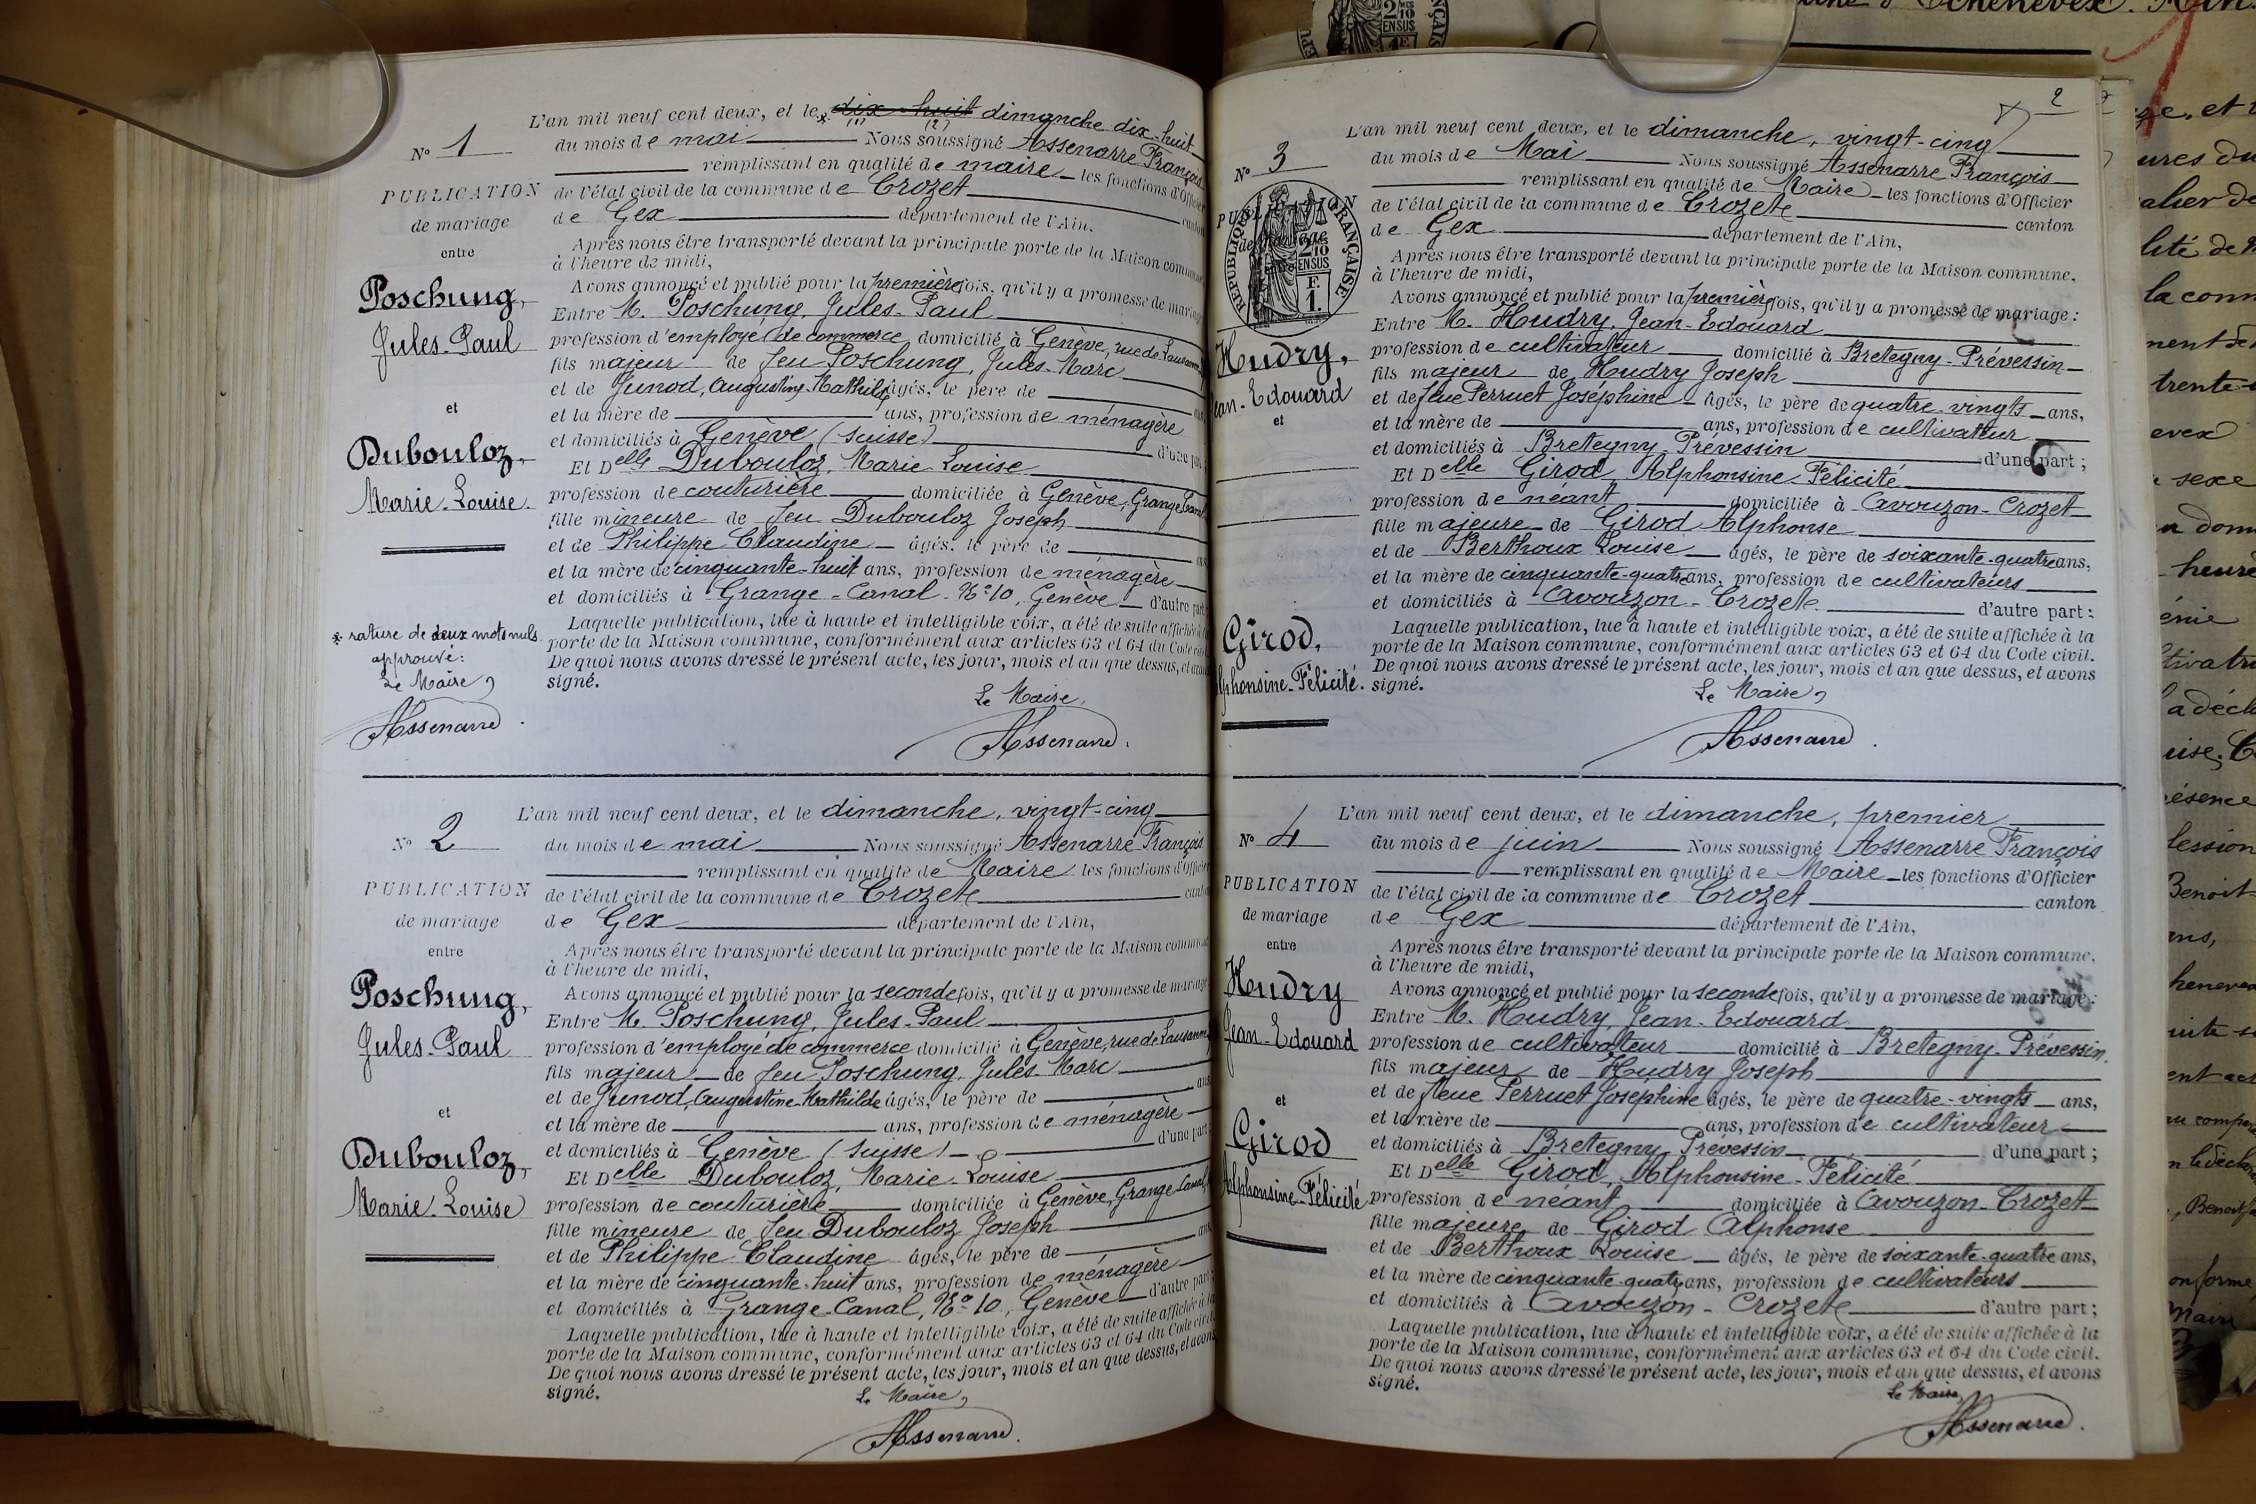 N° 1
PUBLICATION
de mariage
entre
Poschung,
Jules-Paul
et
Dubouloz,
Marie-Louise.
* rature de deux mots nuls.
approuvé:
Le Maire,
Assenarre
L'an mil neuf cent deux, et le * dix-huit dimanche dix-huit
du mois de mai Nous soussigné Assenarre François
remplissant en qualité de maire les fonctions d'Officier
de l'état civil de la commune de Crozet canton
de Gex département de l'Ain,
Après nous être transporté devant la principale porte de la Maison commune
à l'heure de midi,
Avons annoncé et publié pour la première fois, qu'il y a promesse de mariage
Entre M. Poschung, Jules-Paul
profession d'employé de commerce domicilié à Genève, rue de Lausanne
fils majeur de feu Poschung, Jules-Marc
et de Junod, Augustine-Mathilde âgés, le père de ans,
et la mère de ans, profession de ménagère
et domiciliés à Genève (Suisse) d'une part;
Et Delle Dubouloz, Marie-Louise
profession de couturière domiciliée à Genève, Grange Canal
fille mineure de feu Dubouloz Joseph
et de Philippe Claudine âgés, le père de ans
et la mère de cinquante-huit ans, profession de ménagère
et domiciliés à Grange-Canal-N° 10, Genève d'autre part:
Laquelle publication, lue à haute et intelligible voix, a été de suite affichée à la
porte de la Maison commune, conformément aux articles 63 et 64 du Code civil
De quoi nous avons dressé le présent acte, les jour, mois et an que dessus, et avons
signé.
Le Maire,
Assenarre
N° 2
PUBLICATION
de mariage
entre
Poschung,
Jules-Paul
et
Dubouloz,
Marie-Louise
L'an mil neuf cent deux, et le dimanche, vingt-cinq
du mois de mai Nous soussigné Assenarre François
remplissant en qualité de Maire les fonctions d'Officier
de l'état civil de la commune de Crozet canton
de Gex département de l'Ain,
Après nous être transporté devant la principale porte de la Maison commune
à l'heure de midi,
Avons annoncé et publié pour la seconde fois, qu'il y a promesse de mariage
Entre M. Poschung, Jules-Paul
profession d'employé de commerce domicilié à Genève, rue de Lausanne
fils majeur de feu Poschung, Jules-Marc
et de Junod, Augustine-Mathilde âgés, le père de ans
et la mère de ans, profession de ménagère
et domiciliés à Genève (Suisse) d'une part
Et Delle Dubouloz, Marie-Louise
profession de couturière domiciliée à Genève, Grange Canal
fille mineure de feu Dubouloz Joseph
et de Philippe Claudine âgés, le père de ans
et la mère de cinquante-huit ans, profession de ménagère
et domiciliés à Grange-Canal, N° 10, Genève d'autre part
Laquelle publication, lue à haute et intelligible voix, a été de suite affichée à la
porte de la Maison commune, conformément aux articles 63 et 64 du Code civil
De quoi nous avons dressé le présent acte, les jour, mois et an que dessus, et avons
signé.
Le Maire,
Assenarre
2
N° 3
PUBLICATION
de mariage
entre
RÉPUBLIQUE FRANÇAISE
2/10 EN SUS
F. 1.
Hudry,
Jean-Edouard
et
Girod,
Alphonsine-Félicité.
L'an mil neuf cent deux, et le dimanche, vingt-cinq
du mois de Mai Nous soussigné Assenarre François
remplissant en qualité de Maire les fonctions d'Officier
de l'état civil de la commune de Crozet canton
de Gex département de l'Ain,
Après nous être transporté devant la principale porte de la Maison commune,
à l'heure de midi,
Avons annoncé et publié pour la première fois, qu'il y a promesse de mariage:
Entre M. Hudry, Jean-Edouard
profession de cultivateur domicilié à Bretegny-Prévessin
fils majeur de Hudry Joseph
et de feue Perruet Joséphine âgés, le père de quatre-vingts ans,
et la mère de ans, profession de cultivateur
et domiciliés à Bretegny-Prévessin d'une part;
Et Delle Girod, Alphonsine-Félicité
profession de néant domiciliée à Avouzon-Crozet
fille majeure de Girod Alphonse
et de Berthoux Louise âgés, le père de soixante-quatre ans,
et la mère de cinquante-quatre ans, profession de cultivateurs
et domiciliés à Avouzon-Crozet d'autre part:
Laquelle publication, lue à haute et intelligible voix, a été de suite affichée à la
porte de la Maison commune, conformément aux articles 63 et 64 du Code civil.
De quoi nous avons dressé le présent acte, les jour, mois et an que dessus, et avons
signé.
Le Maire,
Assenarre
N° 4
PUBLICATION
de mariage
entre
Hudry
Jean-Edouard
et
Girod
Alphonsine-Félicité
L'an mil neuf cent deux, et le dimanche, premier
du mois de juin Nous soussigné Assenarre François
remplissant en qualité de Maire les fonctions d'Officier
de l'état civil de la commune de Crozet canton
de Gex département de l'Ain,
Après nous être transporté devant la principale porte de la Maison commune,
à l'heure de midi,
Avons annoncé et publié pour la seconde fois, qu'il y a promesse de mariage:
Entre M. Hudry Jean-Edouard
profession de cultivateur domicilié à Bretegny-Prévessin
fils majeur de Hudry Joseph
et de feue Perruet Joséphine âgés, le père de quatre-vingts ans,
et la mère de ans, profession de cultivateur
et domiciliés à Bretegny-Prévessin d'une part;
Et Delle Girod, Alphonsine-Félicité
profession de néant domiciliée à Avouzon-Crozet
fille majeure de Girod Alphonse
et de Berthoux Louise âgés, le père de soixante-quatre ans,
et la mère de cinquante-quatre ans, profession de cultivateurs
et domiciliés à Avouzon-Crozet d'autre part;
Laquelle publication, lue à haute et intelligible voix, a été de suite affichée à la
porte de la Maison commune, conformément aux articles 63 et 64 du Code civil.
De quoi nous avons dressé le présent acte, les jour, mois et an que dessus, et avons
signé.
Le Maire,
Assenarre